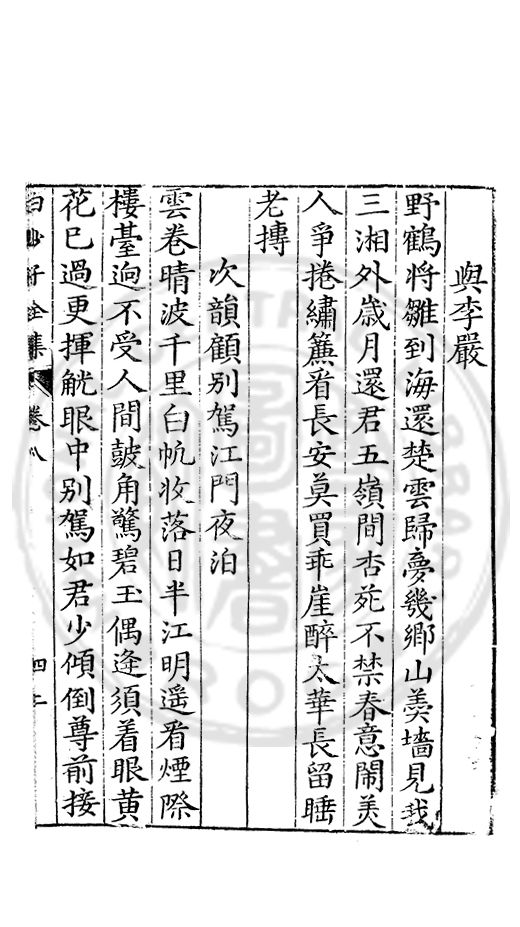 與李嚴
野鶴将雛到海還楚雲歸夣幾鄉山羮墻見我
三湘外歲月還君五嶺間杏苑不禁春意閙美
人爭捲繡簾看長安莫買乖崖醉太華長留睡
老摶
次韻顧别駕江門夜泊
雲卷晴波千里白帆收落日半江明遥看煙際
樓臺逈不受人間皷角驚碧玉偶逢須着眼黄
花已過更揮觥眼中别駕如君少傾倒尊前接
白沙子全集 卷八 四二